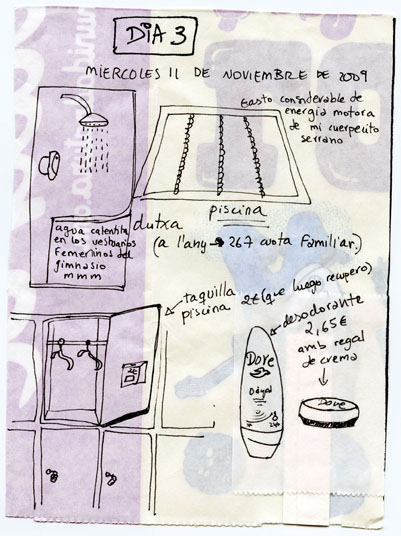 DIA 3
MIERCOLES 11 DE NOVIEMBRE DE 2009
Gasto considerable de
energia motora
de mi cuerpecito
serrano
piscina
dutxa
(a l'any → 267 cuota familiar.)
agua calentita
en los vestuarios
femeninos del
gimnasio
mmm
taquilla
piscina 2€ (que luego recupero)
desodorante
2,65€
amb regal
de crema
Dove
Dove